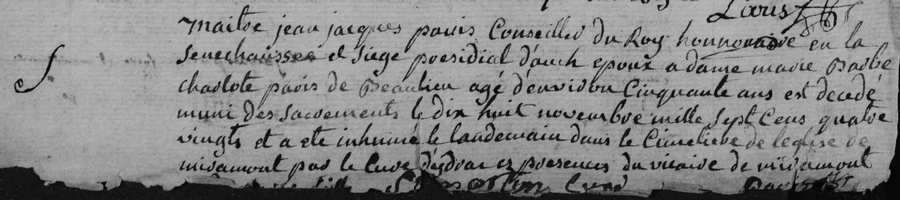 Louis
S
Maitre jean jacques paris Conseiller du Roy honnoraire en la
Senechaussée et siege presidial d'auch epoux a dame marie Barbe
charlote paris de Beaulieu agé d'environ Cinquante ans est decedé
muni des sacrements le dix huit novembre mille sept Cens quatre
vingts et a eté inhumé le landemain dans le Cimetiere de leglise de
miramont par le Curé ez presences du vicaire de miramont
Curé